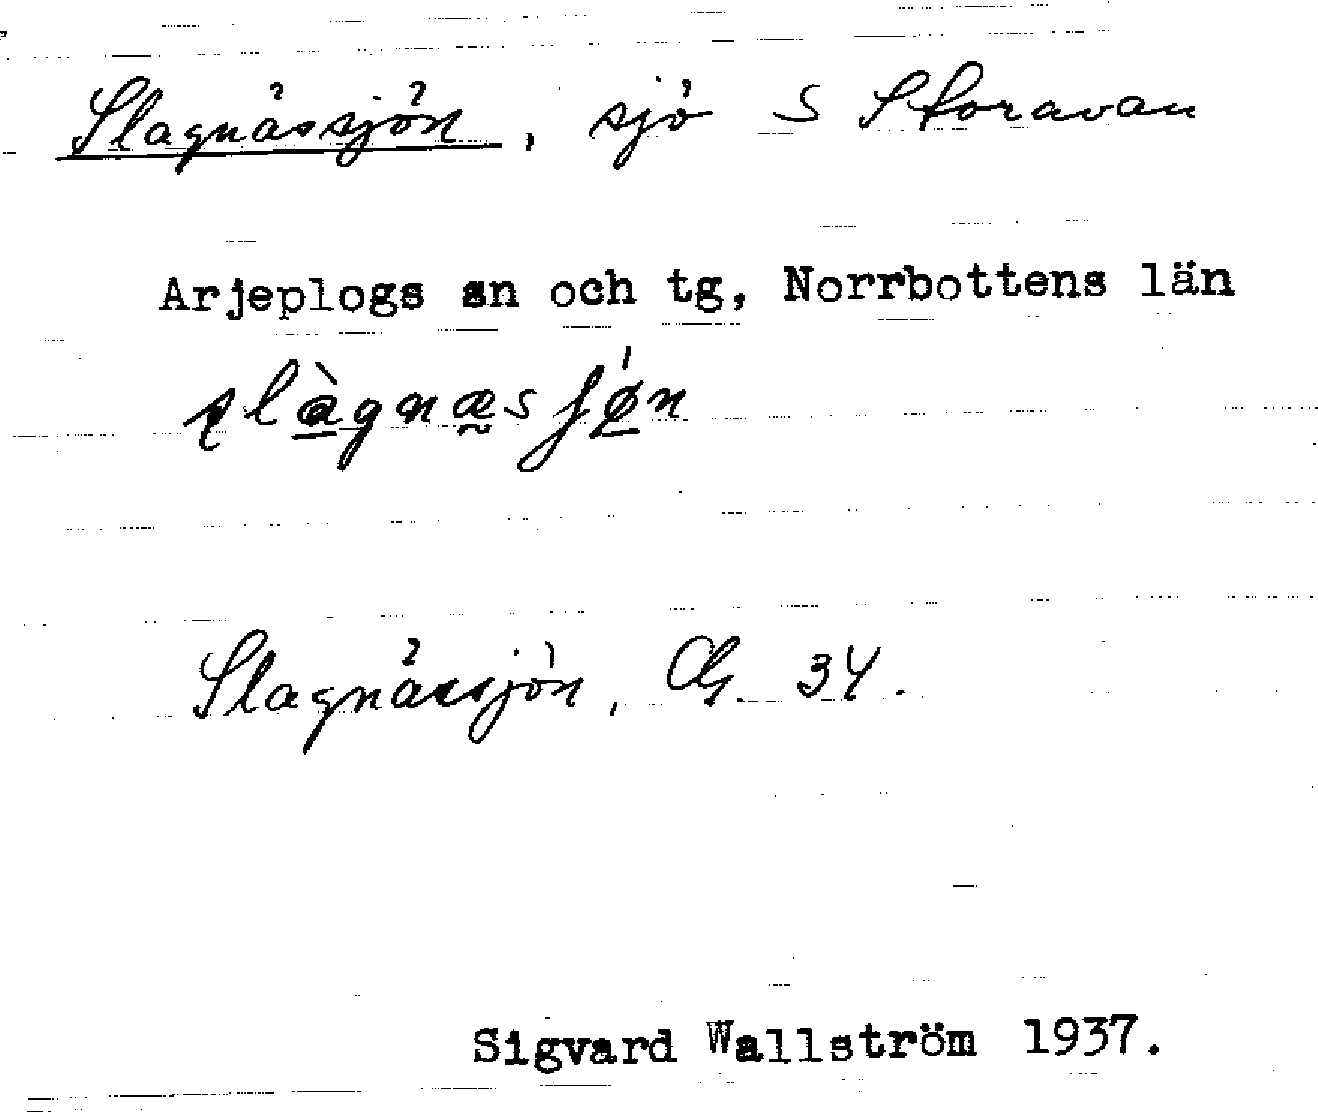 Slagnässjön, sjö S Storavan
Arjeplogs sn och tg, Norrbottens län
Slagnässjön, 34.
Sigvard Wallström 1937.